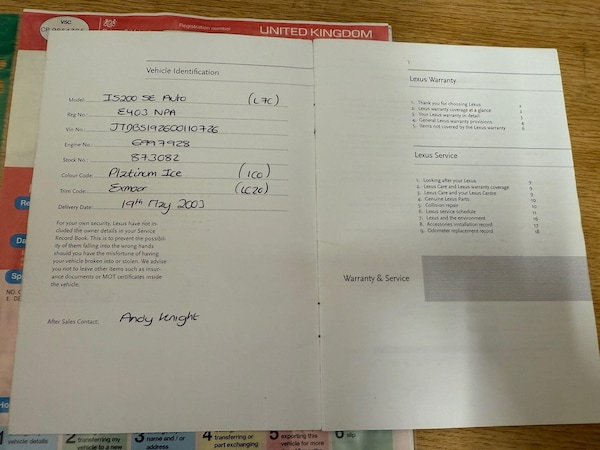 VSC
Registration number
UNITED KINGDOM
Vehicle Identification
Model: IS200 SE Auto (L7C)
Reg No.: E403 NPA
Vin No.: JTDBS192600110726
Engine No.: 6997928
Stock No.: 873082
Colour Code: Platinum Ice (1C0)
Trim Code: Exmoor (LC20)
Delivery Date: 19th May 2003
For your own security, Lexus have not in-
cluded the owner details in your Service
Record Book. This is to prevent the possibil-
ity of them falling into the wrong hands
should you have the misfortune of having
your vehicle broken into or stolen. We advise
you not to leave other items such as insur-
ance documents or MOT certificates inside
the vehicle.
After Sales Contact: Andy Knight
Lexus Warranty
1. Thank you for choosing Lexus 2
2. Lexus warranty coverage at a glance
3. Your Lexus warranty in detail
4. General Lexus warranty provisions
5. Items not covered by the Lexus warranty 6
Lexus Service
1. Looking after your Lexus
2. Lexus Care and Lexus warranty coverage 9
3. Lexus Care and your Lexus Centre 9
4. Genuine Lexus Parts 10
5. Collision repair 10
6. Lexus service schedule 11
7. Lexus and the environment 16
8. Accessories installation record 17
9. Odometer replacement record 18
Warranty & Service
1 vehicle details
2 transferring my vehicle to a new
3 name and / or address
4 transferring or part exchanging
5 exporting this vehicle for more
6 slip